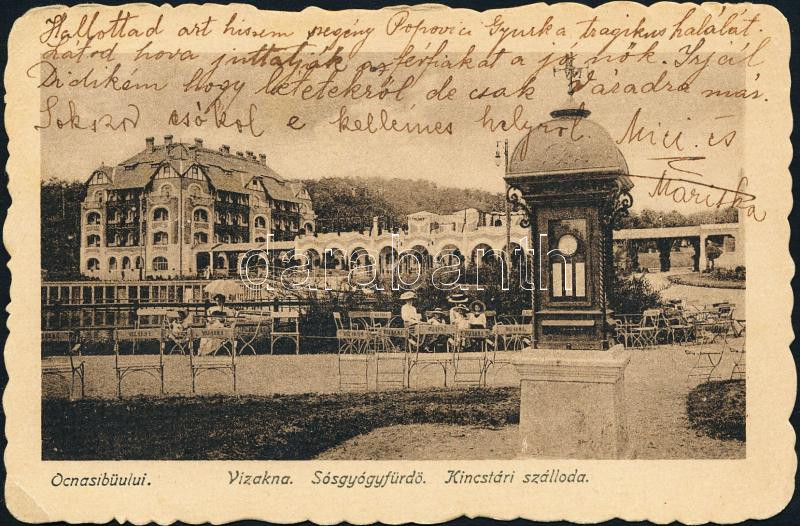 Hallottad azt hiszem szegény Popovici Gyurka tragikus halálát.
Látod hova juttatják a férfiakat a jó nők. Irjál
Didikém hogy létetekről de csak Váradra már.
Sokszor csókol e kellemes helyről Mici és
Mariska
darabanth
Ocnasibüului. Vizakna. Sósgyógyfürdö. Kincstári szálloda.